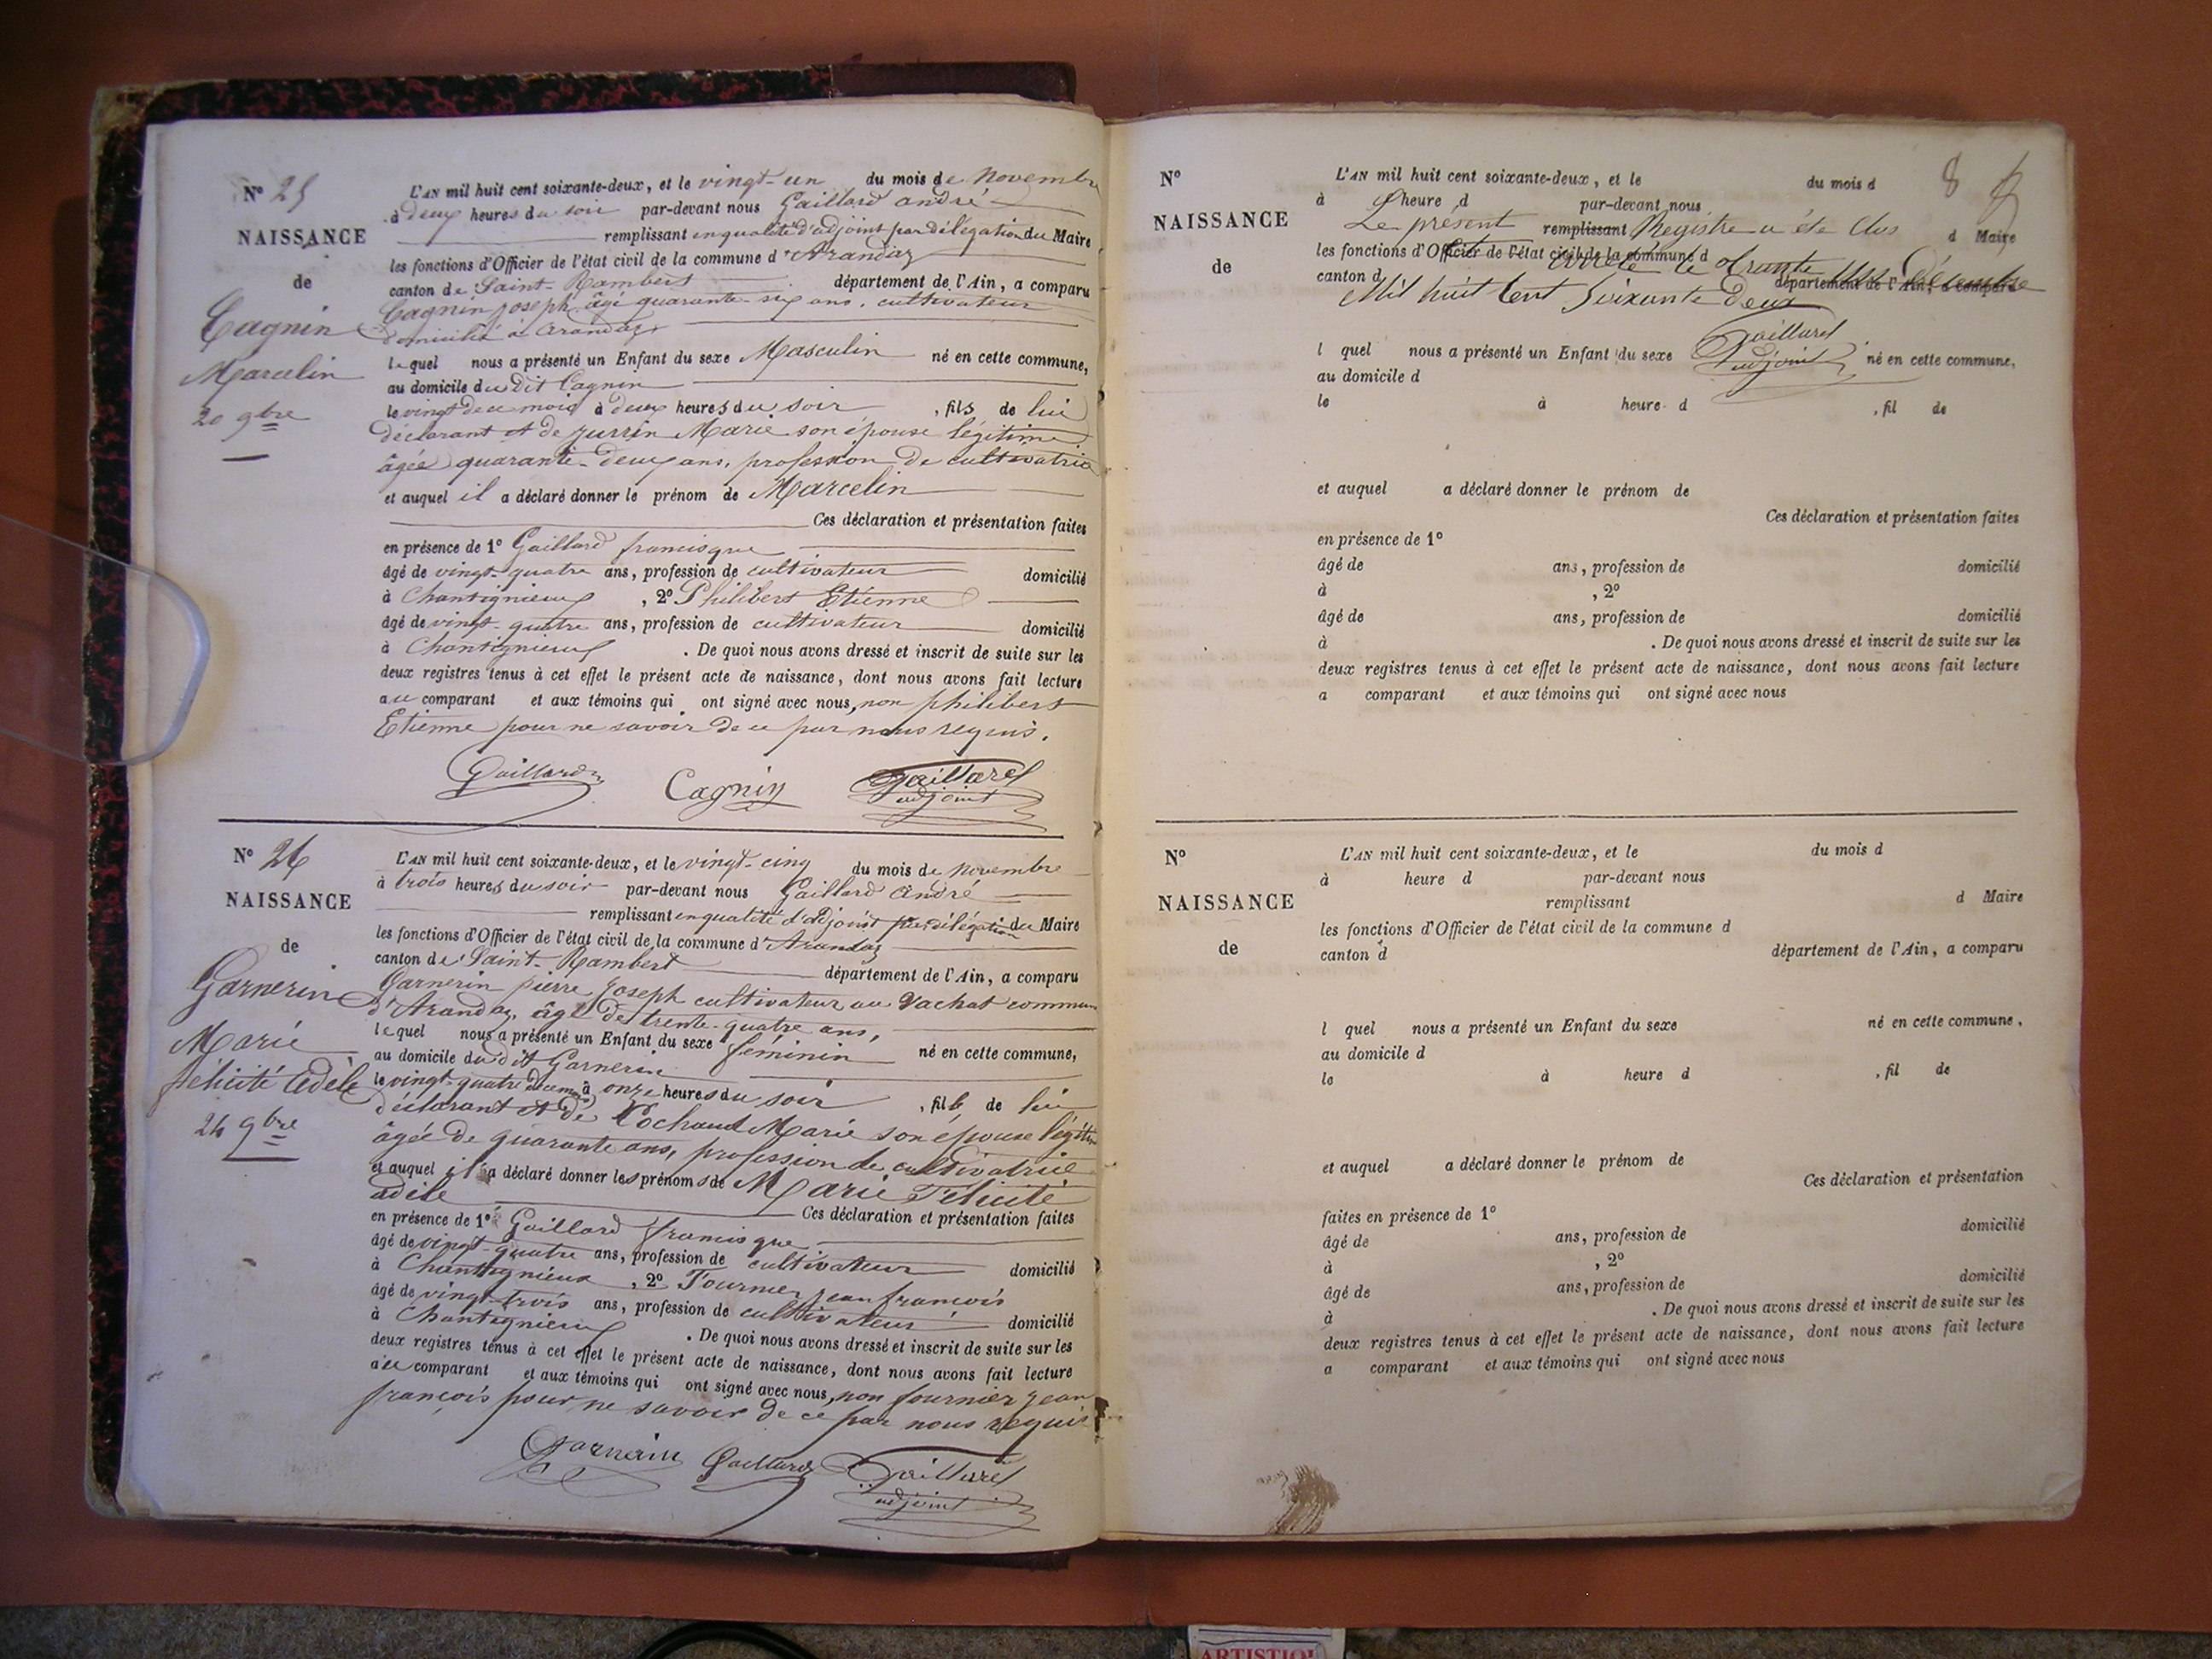 N° 25
NAISSANCE
de
Cagnin
Marcelin
20 9bre
L'AN mil huit cent soixante-deux, et le vingt-un du mois de Novembre
à deux heures du soir par-devant nous Gaillard andré
remplissant en qualité d'adjoint par délégation du Maire
les fonctions d'Officier de l'état civil de la commune d'Arandaz
canton de Saint-Rambert département de l'Ain, a comparu
Cagnin joseph âgé quarante-six ans, cultivateur
domicilié à arandaz
lequel nous a présenté un Enfant du sexe Masculin né en cette commune,
au domicile du dit Cagnin
le vingt de ce mois à deux heures du soir, fils de lui
déclarant et de Marie son épouse légitime
âgée quarante-deux ans, profession de cultivatrice
et auquel il a déclaré donner le prénom de Marcelin
Ces déclaration et présentation faites
en présence de 1° Gaillard francisque
âgé de vingt-quatre ans, profession de cultivateur domicilié
à Chantignieux, 2° Philibert Etienne
âgé de vingt-quatre ans, profession de cultivateur domicilié
à Chantignieux. De quoi nous avons dressé et inscrit de suite sur les
deux registres tenus à cet effet le présent acte de naissance, dont nous avons fait lecture
au comparant et aux témoins qui ont signé avec nous, non philibert
Etienne pour ne savoir de ce par nous requis.
Gaillard Cagnin Gaillard
adjoint
N° 26
NAISSANCE
de
Garnerin
Marie
félicité Adèle
24 9bre
L'AN mil huit cent soixante-deux, et le vingt-cinq du mois de novembre
à trois heures du soir par-devant nous Gaillard André
remplissant en qualité d'adjoint par délégation du Maire
les fonctions d'Officier de l'état civil de la commune d'Arandaz
canton de Saint-Rambert département de l'Ain, a comparu
Garnerin pierre joseph cultivateur au Vachat commune
d'Arandaz, âgé de trente-quatre ans,
lequel nous a présenté un Enfant du sexe féminin né en cette commune,
au domicile du dit Garnerin
le vingt-quatre à onze heures du soir, fille de lui
déclarant et de Marie son épouse légitime
âgée de quarante ans, profession de cultivatrice
et auquel il a déclaré donner les prénoms de Marie Félicité
adèle
Ces déclaration et présentation faites
en présence de 1° Gaillard francisque
âgé de vingt-quatre ans, profession de cultivateur domicilié
à Chantignieux, 2° Fournier jean françois
âgé de vingt-trois ans, profession de cultivateur domicilié
à Chantignieux. De quoi nous avons dressé et inscrit de suite sur les
deux registres tenus à cet effet le présent acte de naissance, dont nous avons fait lecture
au comparant et aux témoins qui ont signé avec nous, non fournier jean
françois pour ne savoir de ce par nous requis
Garnerin Gaillard Gaillard
adjoint
8
N°
NAISSANCE
de
L'AN mil huit cent soixante-deux, et le du mois d
à heure d par-devant nous
Le présent remplissant Registre a été Clos d Maire
les fonctions d'Officier de l'état civil de la commune d
et arrêté le trente un Décembre
canton d département de l'Ain, a comparu
Mil huit Cent Soixante Deux
Gaillard
adjoint
l quel nous a présenté un Enfant du sexe né en cette commune,
au domicile d
le à heure d , fil de
et auquel a déclaré donner le prénom de
Ces déclaration et présentation faites
en présence de 1°
âgé de ans, profession de domicilié
à , 2°
âgé de ans, profession de domicilié
à . De quoi nous avons dressé et inscrit de suite sur les
deux registres tenus à cet effet le présent acte de naissance, dont nous avons fait lecture
a comparant et aux témoins qui ont signé avec nous
N°
NAISSANCE
de
L'AN mil huit cent soixante-deux, et le du mois d
à heure d par-devant nous
remplissant d Maire
les fonctions d'Officier de l'état civil de la commune d
canton d département de l'Ain, a comparu
l quel nous a présenté un Enfant du sexe né en cette commune,
au domicile d
le à heure d , fil de
et auquel a déclaré donner le prénom de
Ces déclaration et présentation
faites en présence de 1°
âgé de ans, profession de domicilié
à , 2°
âgé de ans, profession de domicilié
à . De quoi nous avons dressé et inscrit de suite sur les
deux registres tenus à cet effet le présent acte de naissance, dont nous avons fait lecture
a comparant et aux témoins qui ont signé avec nous